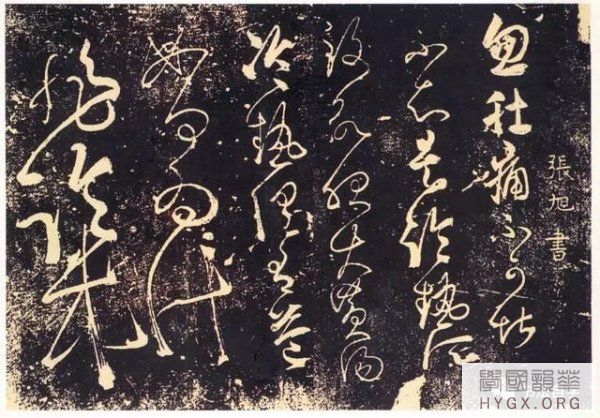 張旭書
忽肚痛不可堪
不知是冷熱所
致欲服大黃湯
冷熱俱有益
如何為計
非冷哉
學國韻華
HYGX.ORG